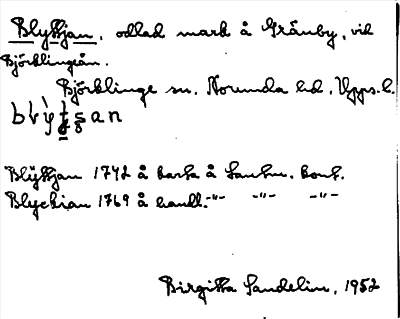 Blyttjan, odlad mark å Gränby, vid
Björklingeån.
Björklinge sn. Norunda hd. Upps. l.
Blÿttjan 1742 å karta å Lantm. kont.
Blyckian 1769 å handl. -"- -"- -"-
Birgitta Sandelin, 1952